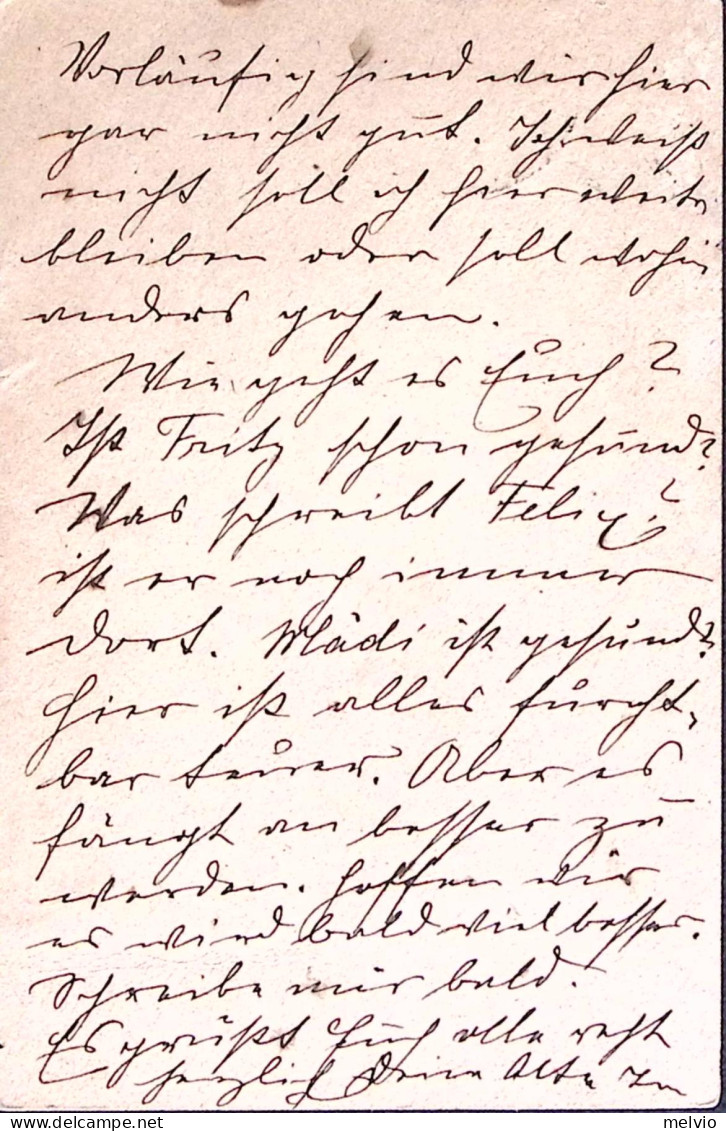 Vorläufig sind wir hier
gar nicht gut. Ich weiß
nicht soll ich hier weiter
bleiben oder soll wohin
anders gehen.
Wie geht es Euch?
Ist Fritz schon gesund?
Was schreibt Felix?
ist er noch immer
dort. Mädi ist gesund?
Hier ist alles furcht-
bar teurer. Aber es
fängt an besser zu
werden. Hoffen wir
es wird bald viel besser.
Schreibe mir bald.
Es grüßt Euch alle recht
herzlich Deine Alte
melvio